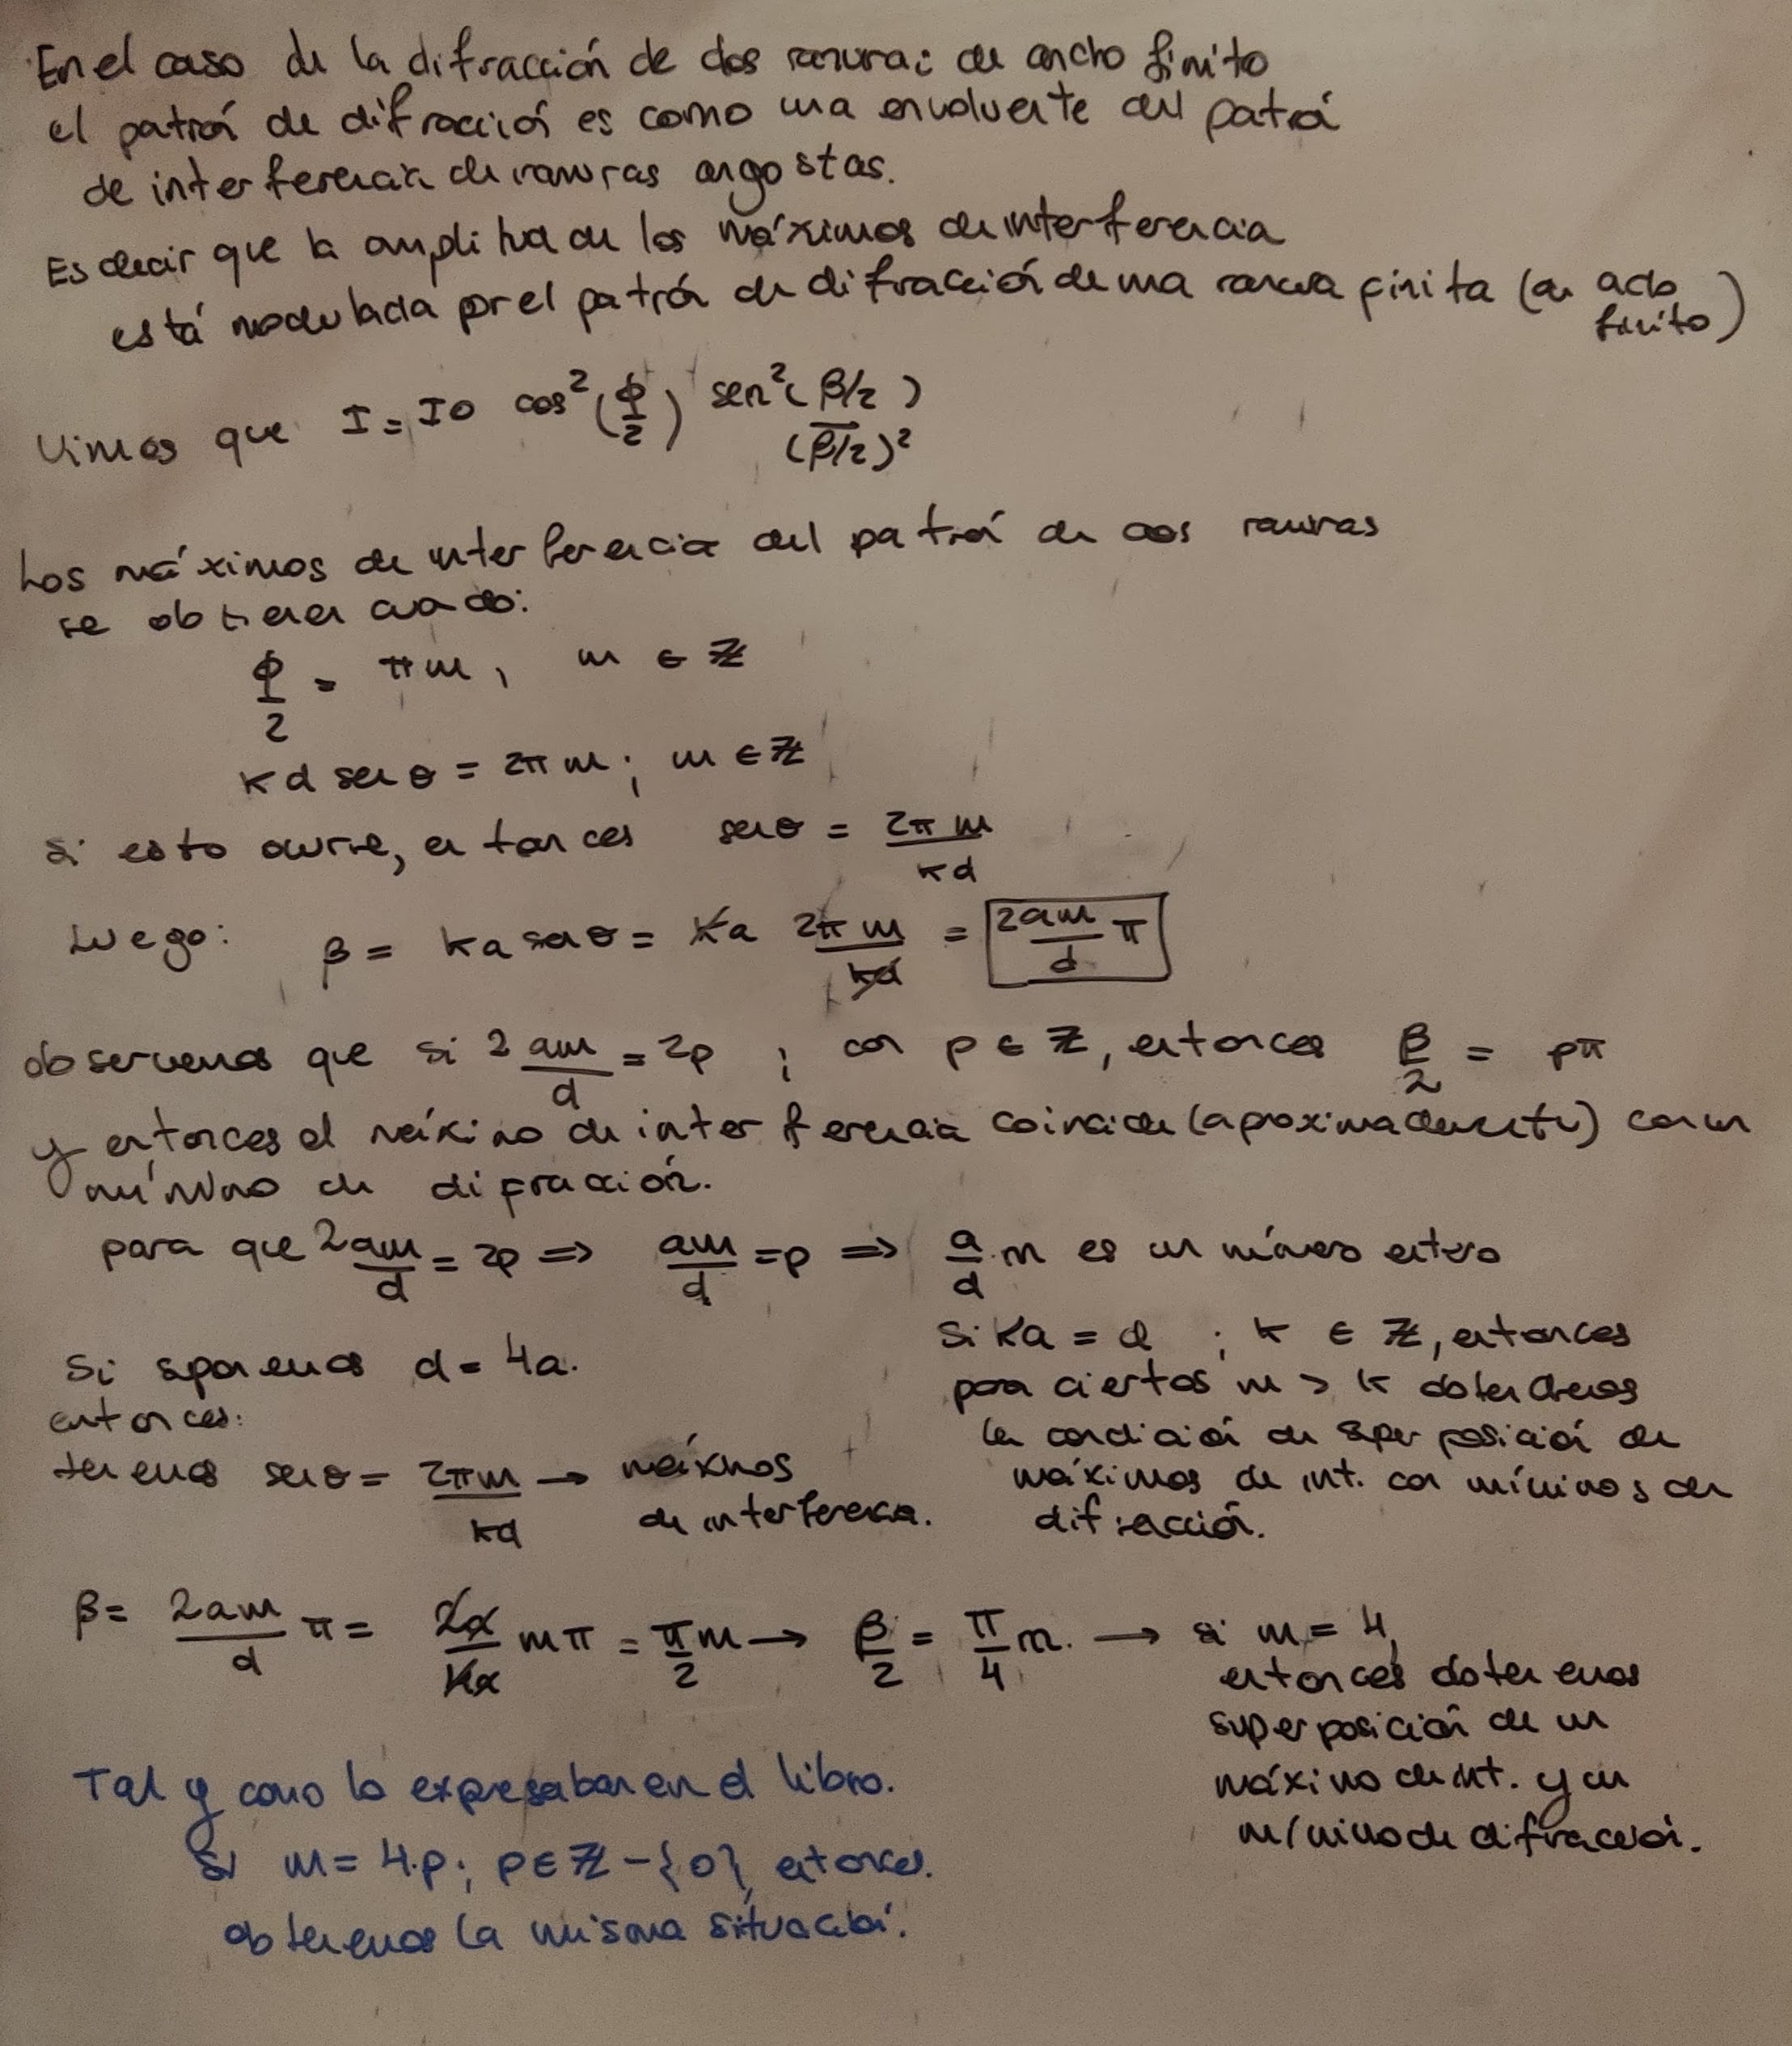 En el caso de la difracción de dos ranuras de ancho finito
el patrón de difracción es como una envolvente del patrón
de interferencia de ranuras angostas.
Es decir que la amplitud de los máximos de interferencia
está modulada por el patrón de difracción de una ranura finita (de ancho
finito)
Vimos que I = I0 cos²(ϕ/2) sen²(β/2)/(β/2)²
Los máximos de interferencia del patrón de dos ranuras
se obtienen cuando:
ϕ/2 = πm, m ∈ ℤ
kd senθ = 2πm; m ∈ ℤ
si esto ocurre, entonces senθ = 2πm/kd
Luego: β = ka senθ = ka 2πm/kd = 2am/d π
observemos que si 2am/d = 2p ; con p ∈ ℤ, entonces β/2 = pπ
y entonces el máximo de interferencia coincide (aproximadamente) con un
mínimo de difracción.
para que 2am/d = 2p ⇒ am/d = p ⇒ a/d m es un número entero
Si ka = d ; k ∈ ℤ, entonces
para ciertos m > k obtendremos
la condición de superposición de
máximos de int. con mínimos de
difracción.
Si suponemos d = 4a.
entonces:
tenemos senθ = 2πm/kd → máximos
de interferencia.
β = 2am/d π = 2a/4a mπ = π/2 m → β/2 = π/4 m. → si m = 4,
entonces obtenemos
superposición de un
máximo de int. y un
mínimo de difracción.
Tal y como lo expresaban en el libro.
Si m = 4.p; p ∈ ℤ - {0}, entonces.
obtenemos la misma situación.